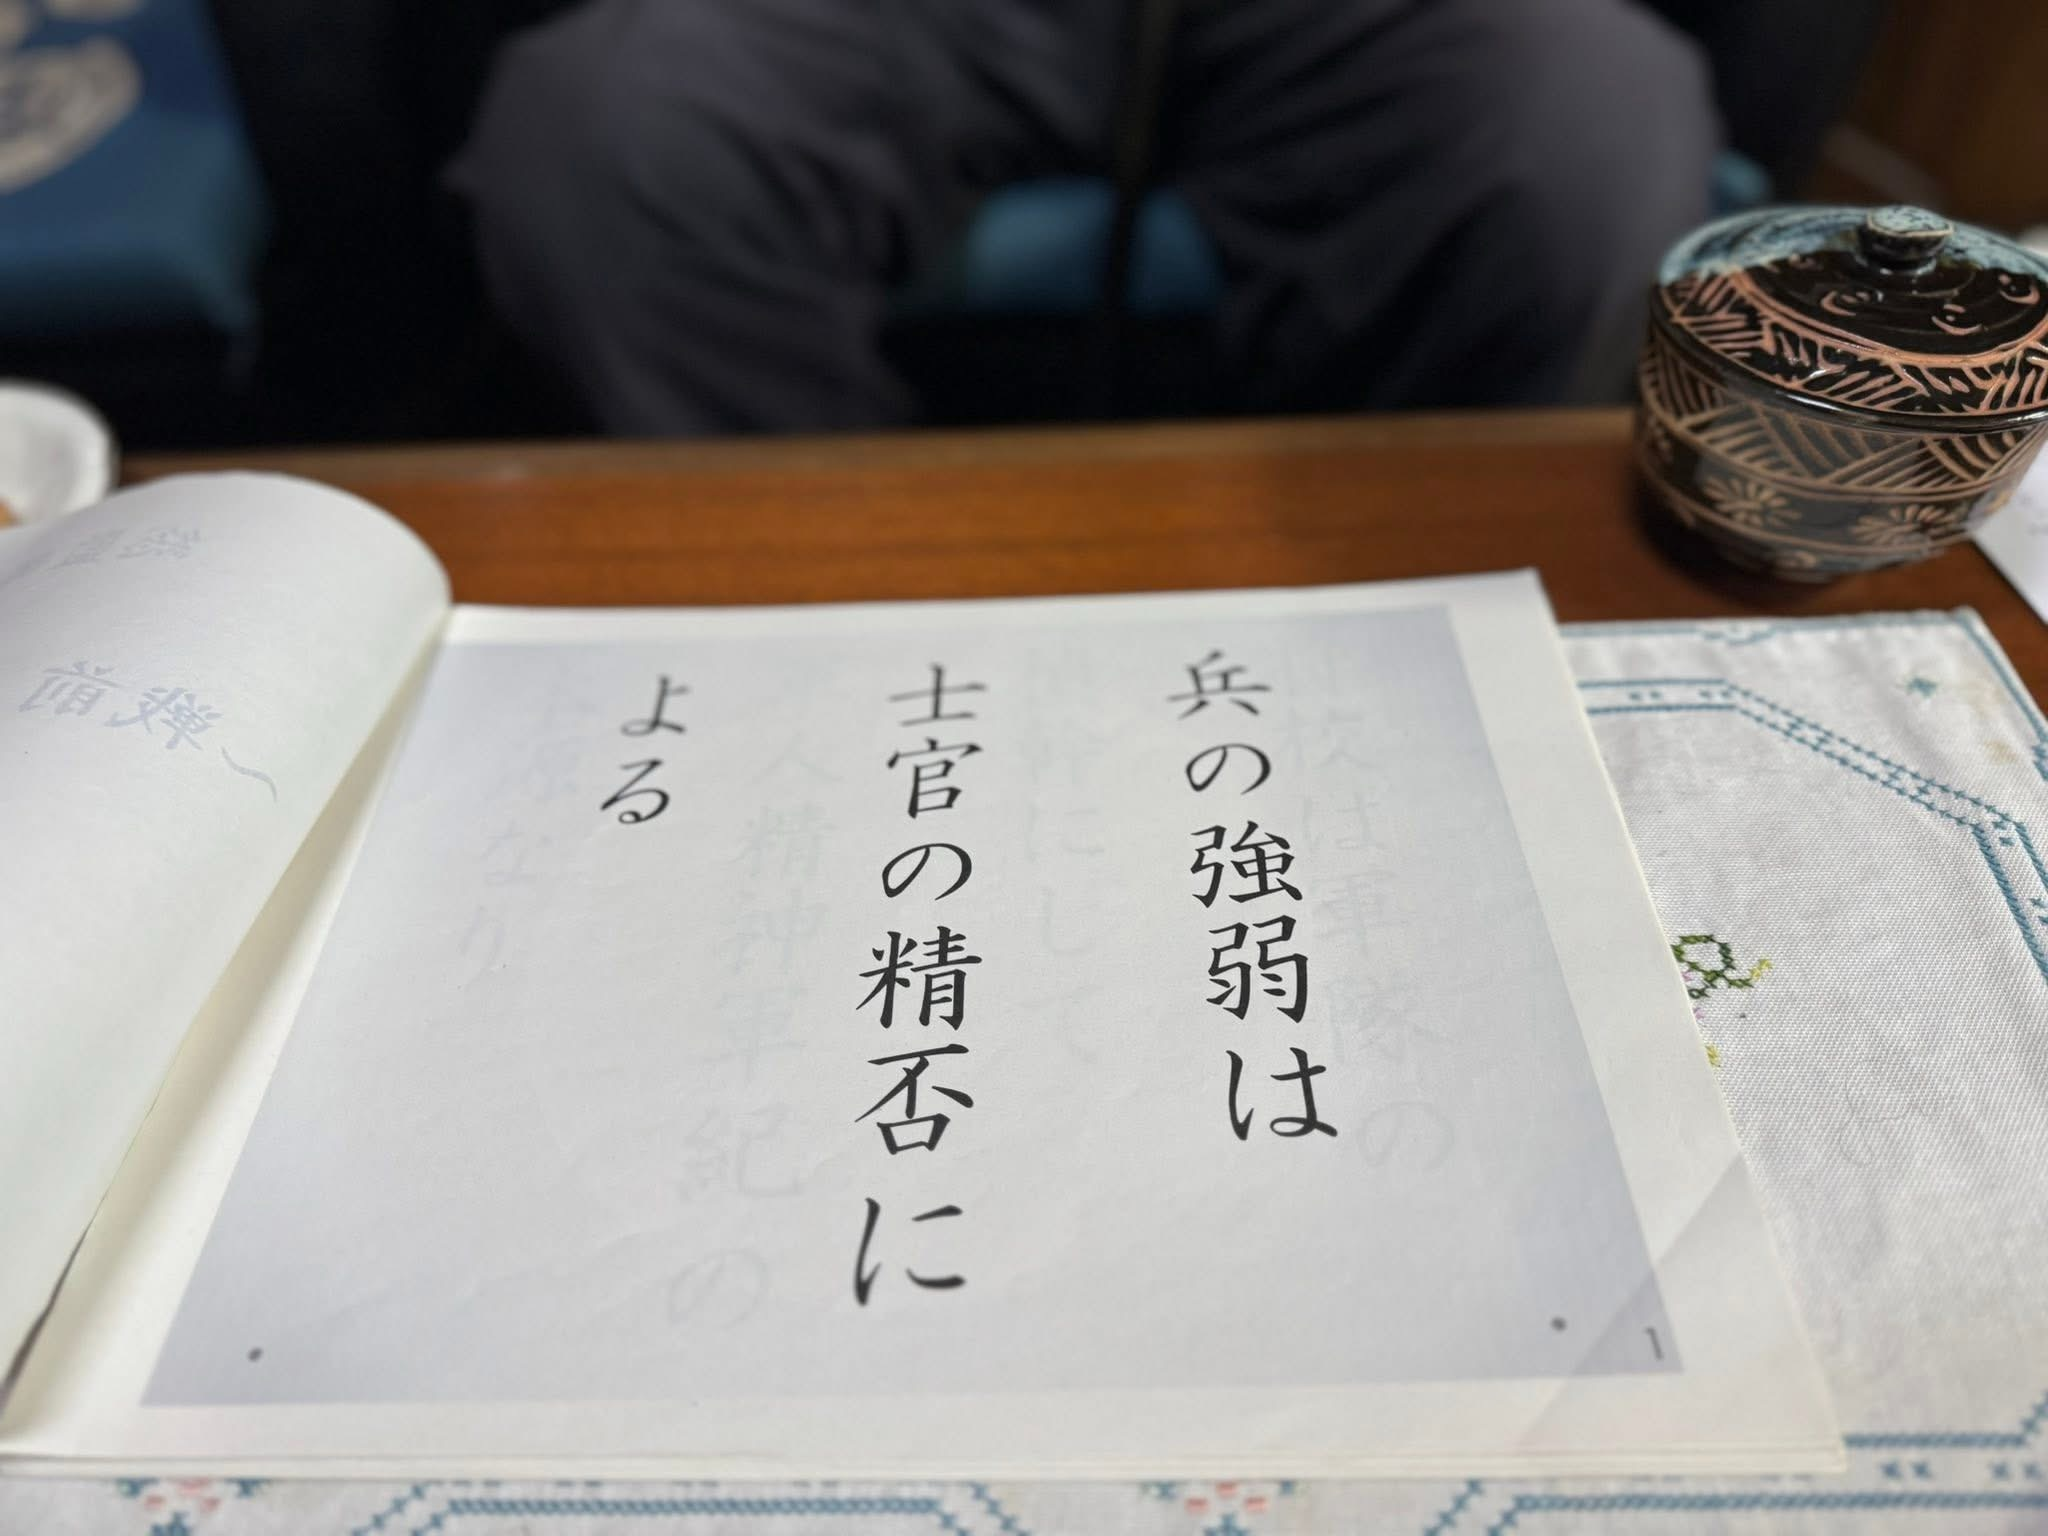 兵の強弱は
士官の精否に
よる
1